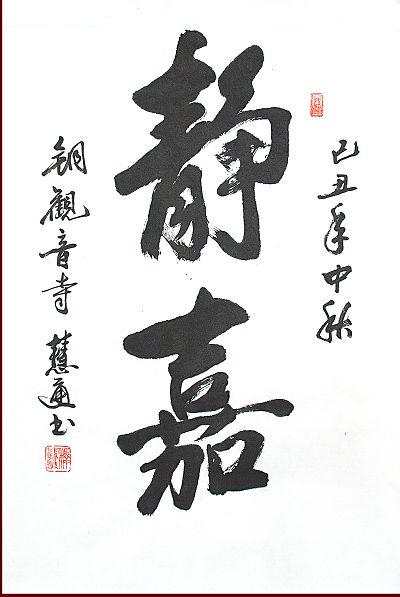 己丑年中秋
靜嘉
銅觀音寺 慧通书